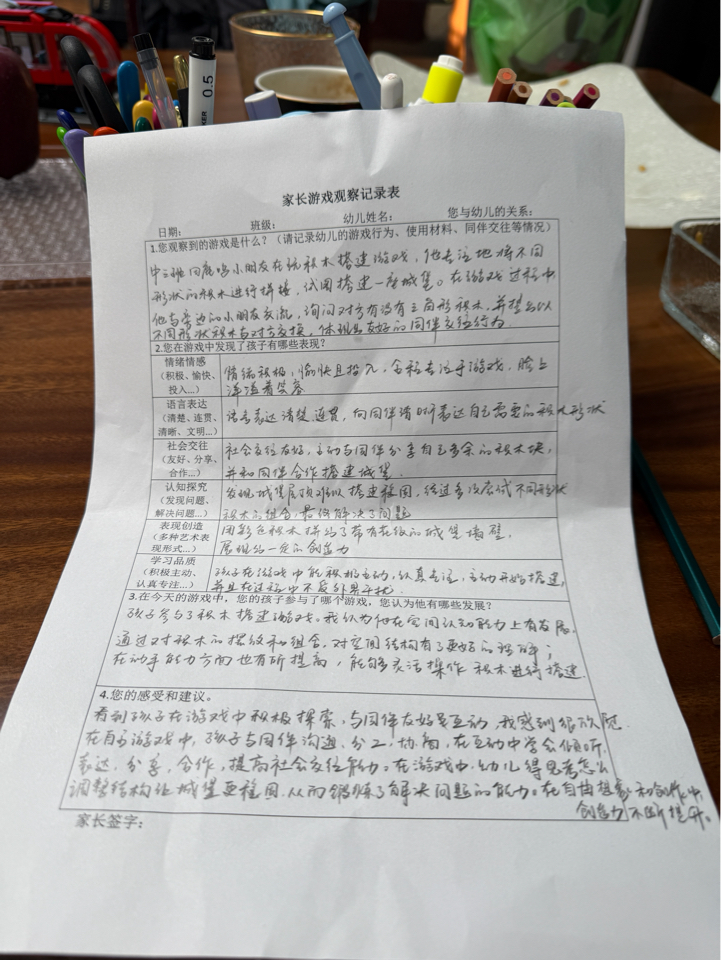 0.5
家长游戏观察记录表
日期： 班级： 幼儿姓名： 您与幼儿的关系：
1.您观察到的游戏是什么？（请记录幼儿的游戏行为、使用材料、同伴交往等情况）
中三班 小朋友在玩积木搭建游戏，他专注地将不同
形状的积木进行拼接，试图搭建一座城堡。在游戏过程中
他与旁边的小朋友交流，询问对方有没有三角形积木，并提出以
不同形状积木与对方交换。体现出友好的同伴交往行为
2.您在游戏中发现了孩子有哪些表现？
情绪情感
（积极、愉快、
投入...）
情绪积极，愉快且投入，全程专注于游戏，脸上
洋溢着笑容
语言表达
（清楚、连贯、
清晰、文明...）
语言表达清楚、连贯，向同伴清晰表达自己需要的积木形状
社会交往
（友好、分享、
合作...）
社会交往友好，主动与同伴分享自己多余的积木块，
并和同伴合作搭建城堡
认知探究
（发现问题、
解决问题...）
发现城堡屋顶难以搭建稳固，经过多次尝试不同形状
积木的组合，最终解决了问题
表现创造
（多种艺术表
现形式...）
用彩色积木拼出了带有花纹的城堡墙壁，
展现出一定的创造力
学习品质
（积极主动、
认真专注...）
孩子在游戏中能积极主动，认真专注，主动开始搭建，
并且在过程中不受外界干扰
3.在今天的游戏中，您的孩子参与了哪个游戏，您认为他有哪些发展？
孩子参与了积木搭建游戏。我认为他在空间认知能力上有发展，
通过对积木的摆放和组合，对空间结构有了更好的理解；
在动手能力方面也有所提高，能够灵活操作积木进行搭建
4.您的感受和建议。
看到孩子在游戏中积极探索，与同伴友好互动，我感到很欣慰
在自主游戏中，孩子与同伴沟通、分工、协商，在互动中学会倾听、
表达、分享、合作，提高社会交往能力。在游戏中，幼儿得思考怎么
调整结构让城堡更稳固，从而锻炼了解决问题的能力。在自由想象和创作中，
创造力不断提升。
家长签字：